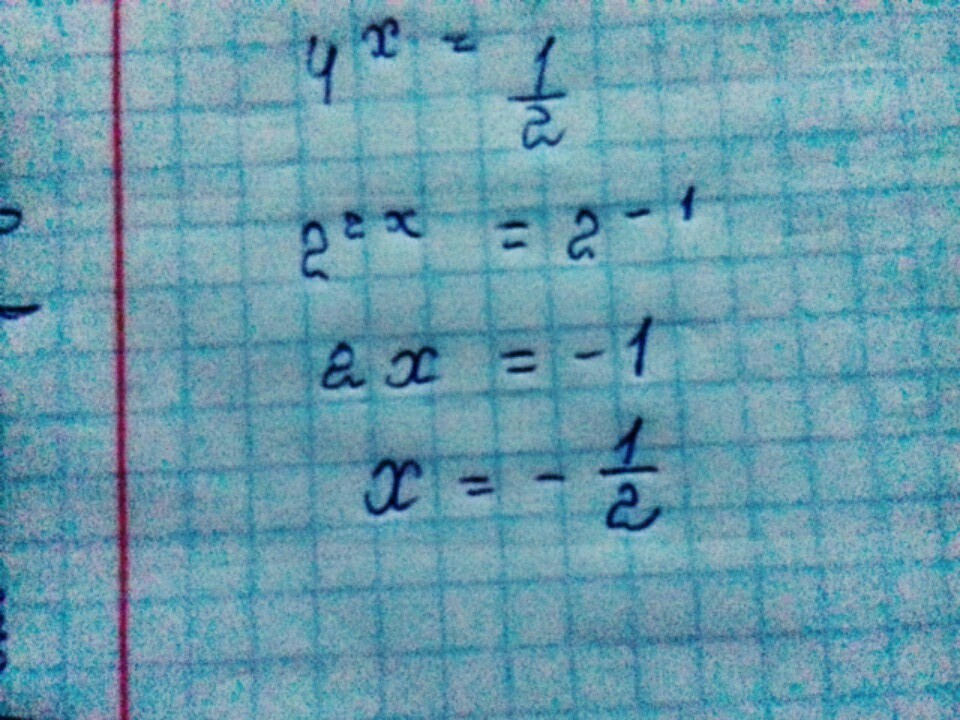 4^x = 1/2
2^2x = 2^-1
2x = -1
x = -1/2